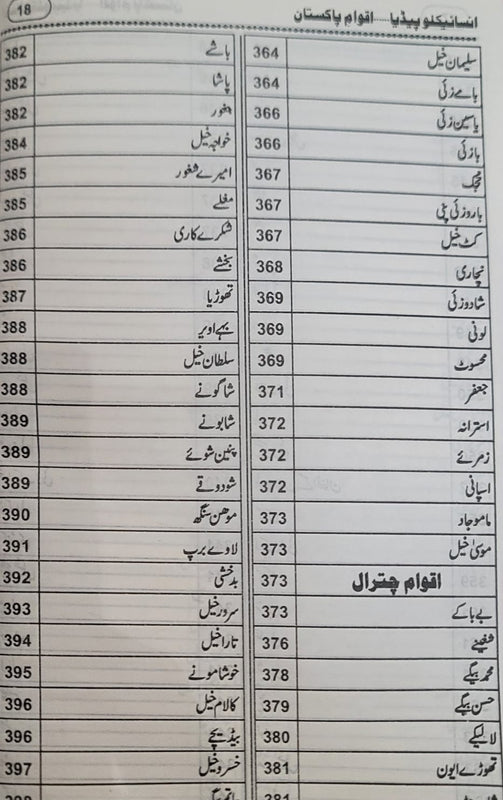 انسائیکلوپیڈیا.....اقوام پاکستان 18
سلیمان خیل 364
بامے زئی 364
یاسین زئی 366
بازئی 366
367
باروزئی پنی 367
کٹ خیل 367
نچاری 368
شادوزئی 369
لونی 369
محسوٹ 369
جعفر 371
استرانہ 372
زمرئے 372
اسپانی 372
ماموجاد 373
موسیٰ خیل 373
اقوام چترال 373
بے باکے 373
376
محمد بیگے 378
حسن بیگے 379
لالیکے 380
تھوڑے ایون 381
381
باشے 382
پاشا 382
شغور 382
خواجہ خیل 384
امیرے شغور 385
مغلے 385
شکرے کاری 386
بخشے 386
تھوڑیا 387
بہے اویر 388
سلطان خیل 388
شاگونے 388
شابونے 389
پنین شوئے 389
شودوقے 389
موہن سنگھ 390
لاوے برپ 391
بدخشی 392
سرور خیل 393
تارا خیل 394
خوشامونے 395
کالام خیل 396
بیڈیچے 396
خسرو خیل 397